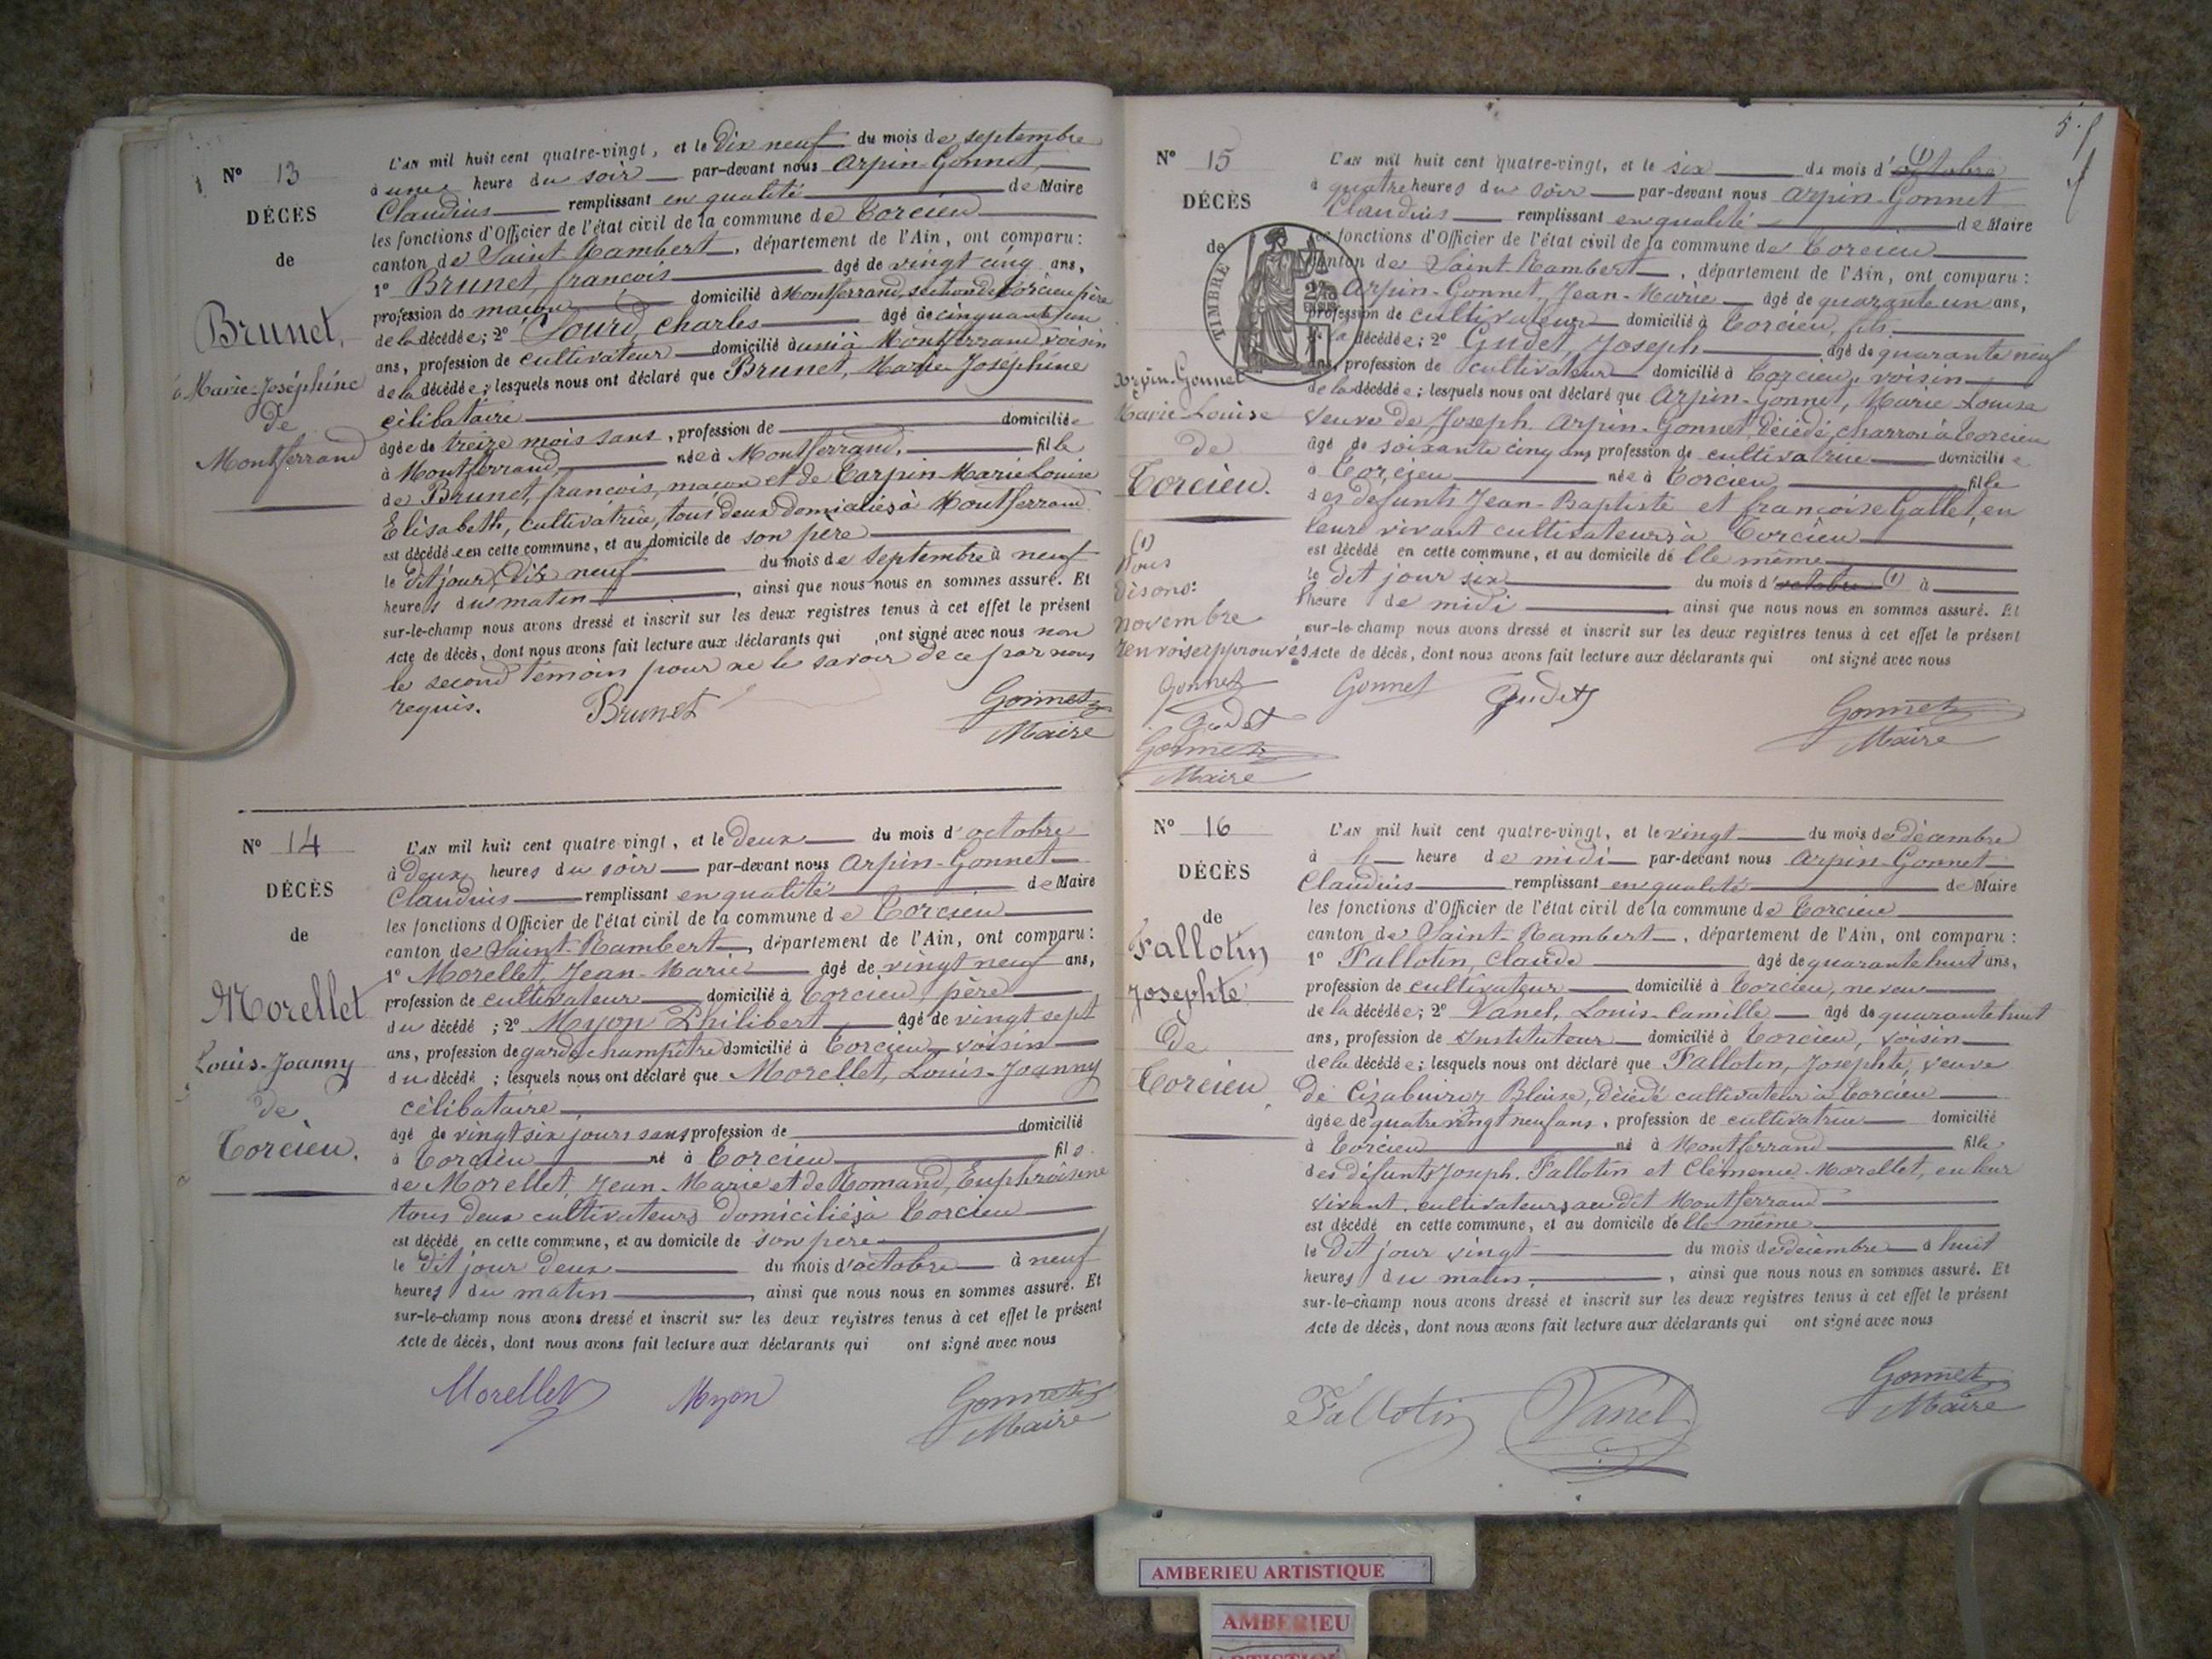 N° 13
DÉCÈS
de
Brunet,
Marie-Joséphine
de
Montferrand
L'AN mil huit cent quatre-vingt, et le Dix neuf du mois de septembre
à une heure du soir par-devant nous Arpin-Gonnet,
Claudius remplissant en qualité de Maire
les fonctions d'Officier de l'état civil de la commune de Torcieu
canton de Saint-Rambert, département de l'Ain, ont comparu :
1° Brunet, françois âgé de vingt cinq ans,
profession de maçon domicilié à Montferrand, section de Torcieu père
de la décédée ; 2° Lourd, Charles âgé de cinquante un
ans, profession de cultivateur domicilié aussi à Montferrand, voisin
de la décédée ; lesquels nous ont déclaré que Brunet, Marie Joséphine
célibataire
âgée de treize mois sans, profession de domiciliée
à Montferrand née à Montferrand, fille
de Brunet, françois, maçon et de Tarpin Marie Louise
Elisabeth, cultivatrice, tous deux domiciliés à Montferrand
est décédée en cette commune, et au domicile de son père
le dit jour Dix neuf du mois de septembre à neuf
heures du matin, ainsi que nous nous en sommes assuré. Et
sur-le-champ nous avons dressé et inscrit sur les deux registres tenus à cet effet le présent
Acte de décès, dont nous avons fait lecture aux déclarants qui ont signé avec nous non
le second témoin pour ne le savoir de ce par nous
requis.
Brunet
Gonnet
Maire
N° 14
DÉCÈS
de
Morellet
Louis-Joanny
de
Torcieu.
L'AN mil huit cent quatre vingt, et le Deux du mois d'octobre
à deux heures du soir par-devant nous Arpin-Gonnet
Claudius remplissant en qualité de Maire
les fonctions d'Officier de l'état civil de la commune de Torcieu
canton de Saint-Rambert, département de l'Ain, ont comparu :
1° Morellet, Jean-Marie âgé de vingt neuf ans,
profession de cultivateur domicilié à Torcieu, père
du décédé ; 2° Myon Philibert âgé de vingt sept
ans, profession de garde champêtre domicilié à Torcieu, voisin
du décédé ; lesquels nous ont déclaré que Morellet, Louis-Joanny
célibataire
âgé de vingt six jours sans profession de domicilié
à Torcieu né à Torcieu fils
de Morellet, Jean-Marie et de Romand, Euphroisine
tous deux cultivateurs domiciliés à Torcieu
est décédé en cette commune, et au domicile de son père
le dit jour deux du mois d'octobre à neuf
heures du matin, ainsi que nous nous en sommes assuré. Et
sur-le-champ nous avons dressé et inscrit sur les deux registres tenus à cet effet le présent
Acte de décès, dont nous avons fait lecture aux déclarants qui ont signé avec nous
Morellet
Myon
Gonnet
Maire
5.
N° 15
DÉCÈS
de
TIMBRE
Arpin-Gonnet
Marie-Louise
de
Torcieu.
(1)
Nous
disons:
novembre
Renvois approuvés
Gonnet
Gudet
Gonnet
Maire
L'AN mil huit cent quatre-vingt, et le six du mois d'octobre (1)
à quatre heures du soir par-devant nous Arpin-Gonnet
Claudius remplissant en qualité de Maire
les fonctions d'Officier de l'état civil de la commune de Torcieu
canton de Saint-Rambert, département de l'Ain, ont comparu :
Arpin-Gonnet, Jean-Marie âgé de quarante un ans,
profession de cultivateur domicilié à Torcieu, fils
de la décédée ; 2° Gudet, Joseph âgé de quarante neuf
ans, profession de cultivateur domicilié à Torcieu, voisin
de la décédée ; lesquels nous ont déclaré que Arpin-Gonnet, Marie-Louise
veuve de Joseph Arpin-Gonnet, décédé, charron à Torcieu
âgé de soixante cinq ans profession de cultivatrice domiciliée
à Torcieu née à Torcieu, fille
des defunts Jean-Baptiste et françoise Gallet, en
leurs vivant cultivateurs à Torcieu
est décédé en cette commune, et au domicile de lle même
le dit jour six du mois d'octobre (1) à
heure de midi ainsi que nous nous en sommes assuré. Et
sur-le-champ nous avons dressé et inscrit sur les deux registres tenus à cet effet le présent
Acte de décès, dont nous avons fait lecture aux déclarants qui ont signé avec nous
Gonnet
Gudet
Gonnet
Maire
N° 16
DÉCÈS
de
Fallotin
Josephte
de
Torcieu
L'AN mil huit cent quatre-vingt, et le vingt du mois de décembre
à heure de midi par-devant nous Arpin-Gonnet
Claudius remplissant en qualité de Maire
les fonctions d'Officier de l'état civil de la commune de Torcieu
canton de Saint-Rambert, département de l'Ain, ont comparu :
1° Fallotin, Claude âgé de quarante huit ans,
profession de cultivateur domicilié à Torcieu, neveu
de la décédée ; 2° Vanel, Louis-Camille âgé de quarante huit
ans, profession de Instituteur domicilié à Torcieu, voisin
de la décédée ; lesquels nous ont déclaré que Fallotin, Josephte, veuve
de Blaise, décédé cultivateur à Torcieu
âgée de quatre vingt neuf ans, profession de cultivatrice domicilié
à Torcieu né à Montferrand fille
des défunts Joseph Fallotin et Clémence Morellet, en leur
vivant cultivateurs au dit Montferrand
est décédé en cette commune, et au domicile de lle même
le dit jour vingt du mois de décembre à huit
heures du matin, ainsi que nous nous en sommes assuré. Et
sur-le-champ nous avons dressé et inscrit sur les deux registres tenus à cet effet le présent
Acte de décès, dont nous avons fait lecture aux déclarants qui ont signé avec nous
Fallotin
Vanel
Gonnet
Maire
AMBERIEU ARTISTIQUE
AMBERIEU
ARTISTIQUE